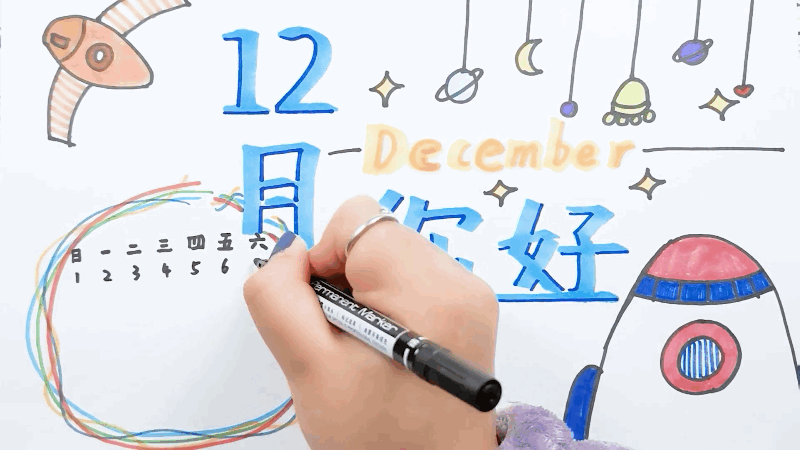 12
月
December
你好
日 一 二 三 四 五 六
1 2 3 4 5 6
Permanent Marker